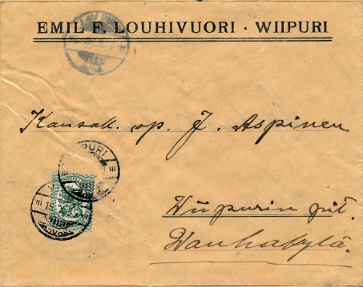 EMIL F. LOUHIVUORI · WIIPURI
Kansak. op. J. Aspinen
Wiipurin pit.
Wanhakylä.